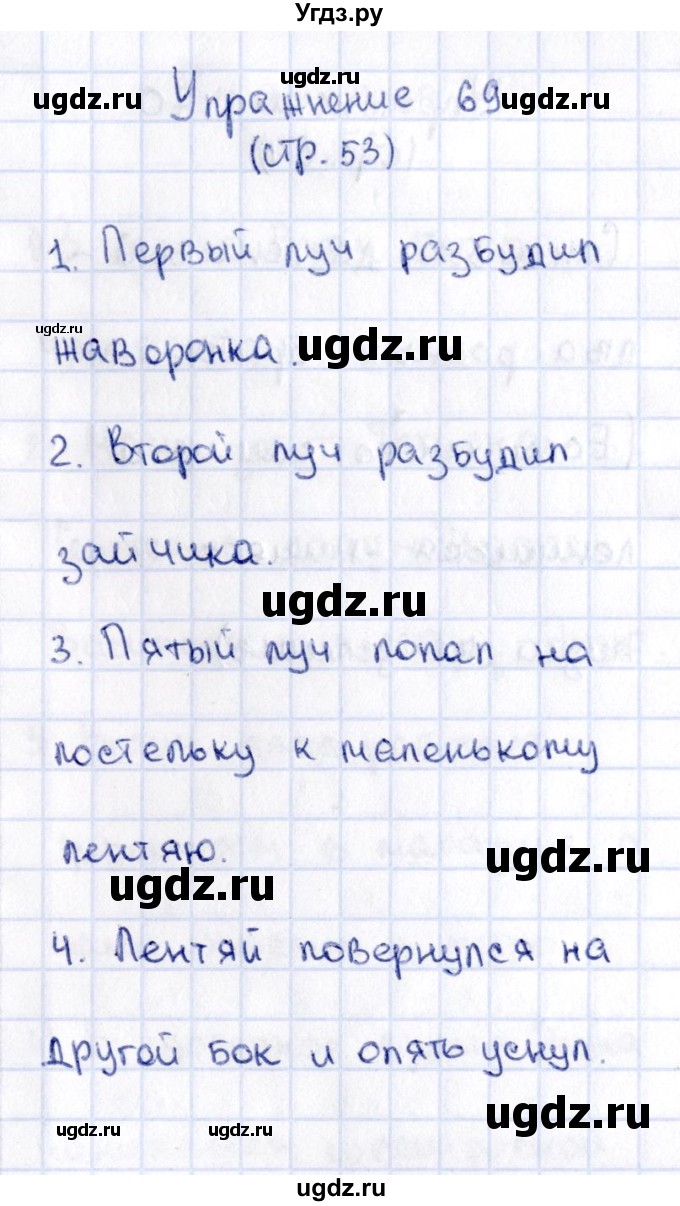 Угдз.ру
ugdz.ru
ugdz.ru Упражнение 69 ugdz.ru
(стр. 53)
1. Первый луч разбудил
ugdz.ru
жаворонка. ugdz.ru
2. Второй луч разбудил
зайчика.
ugdz.ru
3. Пятый луч попал на
постельку к маленькому
лентяю. ugdz.ru
ugdz.ru
4. Лентяй повернулся на
другой бок и опять уснул.
ugdz.ru
ugdz.ru ugdz.ru
ugdz.ru